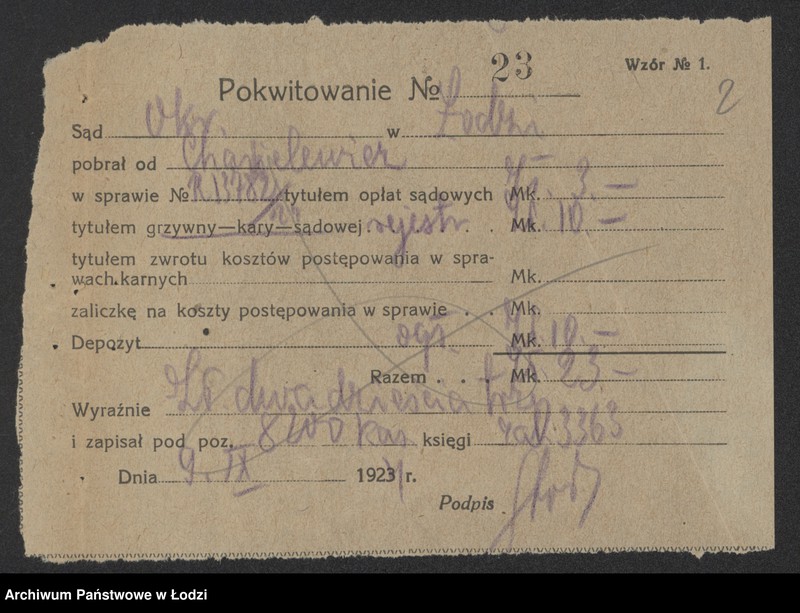 23
Wzór № 1.
Pokwitowanie №
2
Sąd Okr. w Łodzi
pobrał od
w sprawie № tytułem opłat sądowych Mk. Zł. 3.—
tytułem grzywny—kary—sądowej rejestr Mk. Zł. 10 —
tytułem zwrotu kosztów postępowania w spra-
wach karnych Mk.
zaliczkę na koszty postępowania w sprawie Mk.
Depozyt ogł. Mk. Zł. 10.—
Razem Mk. Zł. 23 —
Wyraźnie Zł. dwadzieścia trzy
i zapisał pod poz. kas księgi 3363
Dnia 9. IX 1924 r.
Podpis
Archiwum Państwowe w Łodzi